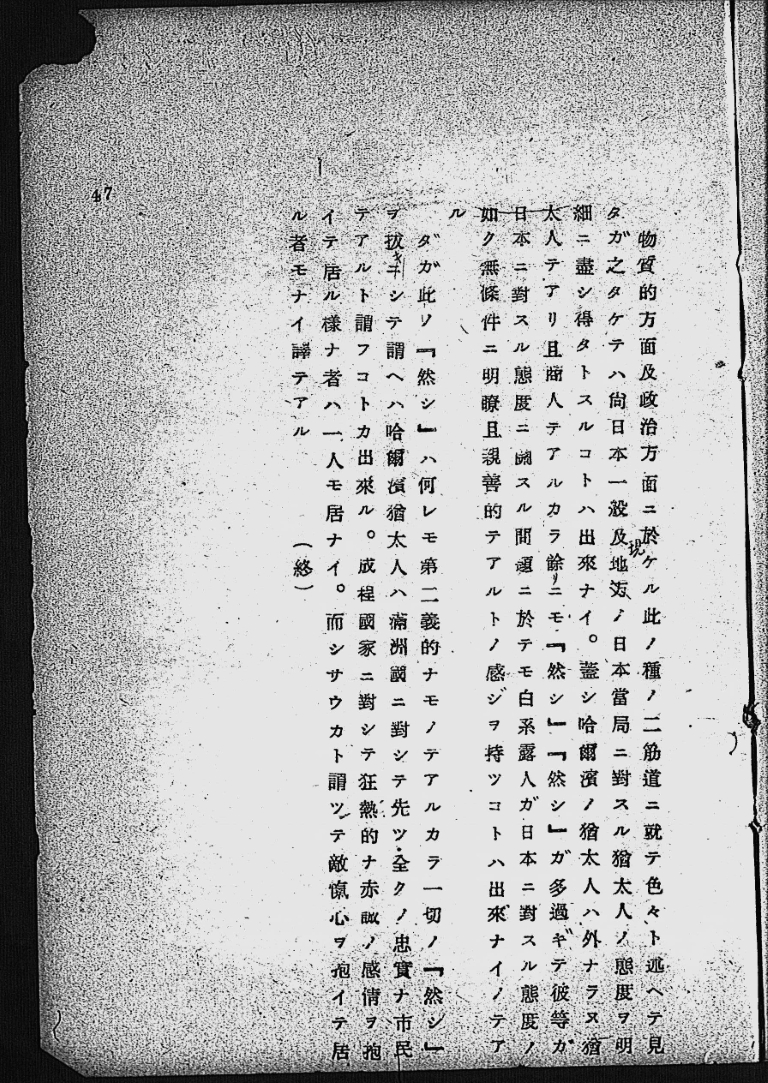 物質的方面及政治方面ニ於ケル此ノ種ノ二筋道ニ就テ色々ト述ヘテ見
タガ之タケテハ尙日本一般及現地ノ日本當局ニ對スル猶太人ノ態度ヲ明
細ニ盡シ得タトスルコトハ出來ナイ。蓋シ哈爾濱ノ猶太人ハ外ナラヌ猶
太人テアリ且商人テアルカラ餘リニモ『然シ』『然シ』ガ多過ギテ彼等ガ
日本ニ對スル態度ニ關スル問題ニ於テモ白系露人ガ日本ニ對スル態度ノ
如ク無條件ニ明瞭且親善的テアルトノ感ジヲ持ツコトハ出來ナイノテア
ル
ダガ此ノ『然シ』ハ何レモ第二義的ナモノテアルカラ一切ノ『然シ』
ヲ拔キニシテ謂ヘハ哈爾濱猶太人ハ滿洲國ニ對シテ先ツ全クノ忠實ナ市民
テアルト謂フコトカ出來ル。成程國家ニ對シテ狂熱的ナ赤誠ノ感情ヲ抱
イテ居ル樣ナ者ハ一人モ居ナイ。而シサウカト謂ツテ敵愾心ヲ抱イテ居
ル者モナイ譯テアル
(終)
47